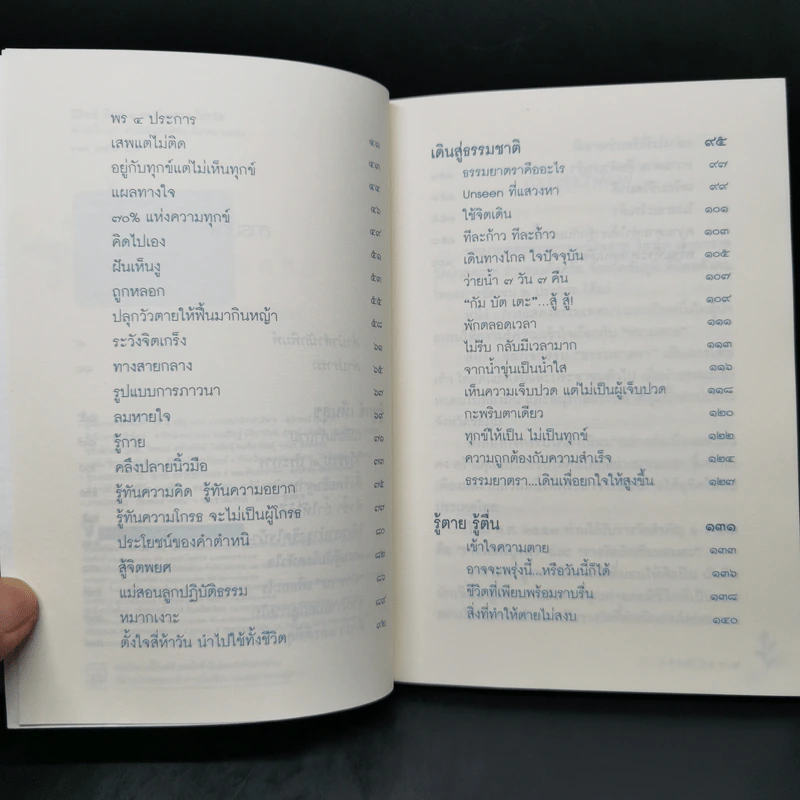 พร ๔ ประการ ๔๑
เสพแต่ไม่ติด ๔๓
อยู่กับทุกข์แต่ไม่เห็นทุกข์ ๔๔
แผลทางใจ ๔๖
๗๐% แห่งความทุกข์ ๔๙
คิดไปเอง ๕๑
ฝันเห็นงู ๕๓
ถูกหลอก ๕๕
ปลุกวัวตายให้ฟื้นมากินหญ้า ๕๘
ระวังจิตเกร็ง ๖๑
ทางสายกลาง ๖๕
รูปแบบการภาวนา ๖๗
ลมหายใจ ๖๙
รู้กาย ๗๑
คลึงปลายนิ้วมือ ๗๓
รู้ทันความคิด รู้ทันความอยาก ๗๕
รู้ทันความโกรธ จะไม่เป็นผู้โกรธ ๗๘
ประโยชน์ของคำตำหนิ ๘๐
สู้จิตพยศ ๘๒
แม่สอนลูกปฏิบัติธรรม ๘๖
หมากเงาะ ๘๙
ตั้งใจสี่ห้าวัน นำไปใช้ทั้งชีวิต ๙๒
เดินสู่ธรรมชาติ ๙๕
ธรรมยาตราคืออะไร ๙๗
Unseen ที่แสวงหา ๙๙
ใช้จิตเดิน ๑๐๑
ทีละก้าว ทีละก้าว ๑๐๓
เดินทางไกล ใจปัจจุบัน ๑๐๕
ว่ายน้ำ ๗ วัน ๗ คืน ๑๐๗
“กัม บัต เตะ”...สู้ สู้! ๑๐๙
พักตลอดเวลา ๑๑๑
ไม่รีบ กลับมีเวลามาก ๑๑๓
จากน้ำขุ่นเป็นน้ำใส ๑๑๖
เห็นความเจ็บปวด แต่ไม่เป็นผู้เจ็บปวด ๑๑๘
กะพริบตาเดียว ๑๒๐
ทุกข์ให้เป็น ไม่เป็นทุกข์ ๑๒๒
ความถูกต้องกับความสำเร็จ ๑๒๔
ธรรมยาตรา...เดินเพื่อยกใจให้สูงขึ้น ๑๒๗
รู้ตาย รู้ตื่น ๑๓๑
เข้าใจความตาย ๑๓๓
อาจจะพรุ่งนี้...หรือวันนี้ก็ได้ ๑๓๖
ชีวิตที่เพียบพร้อมราบรื่น ๑๓๘
สิ่งที่ทำให้ตายไม่สงบ ๑๔๐